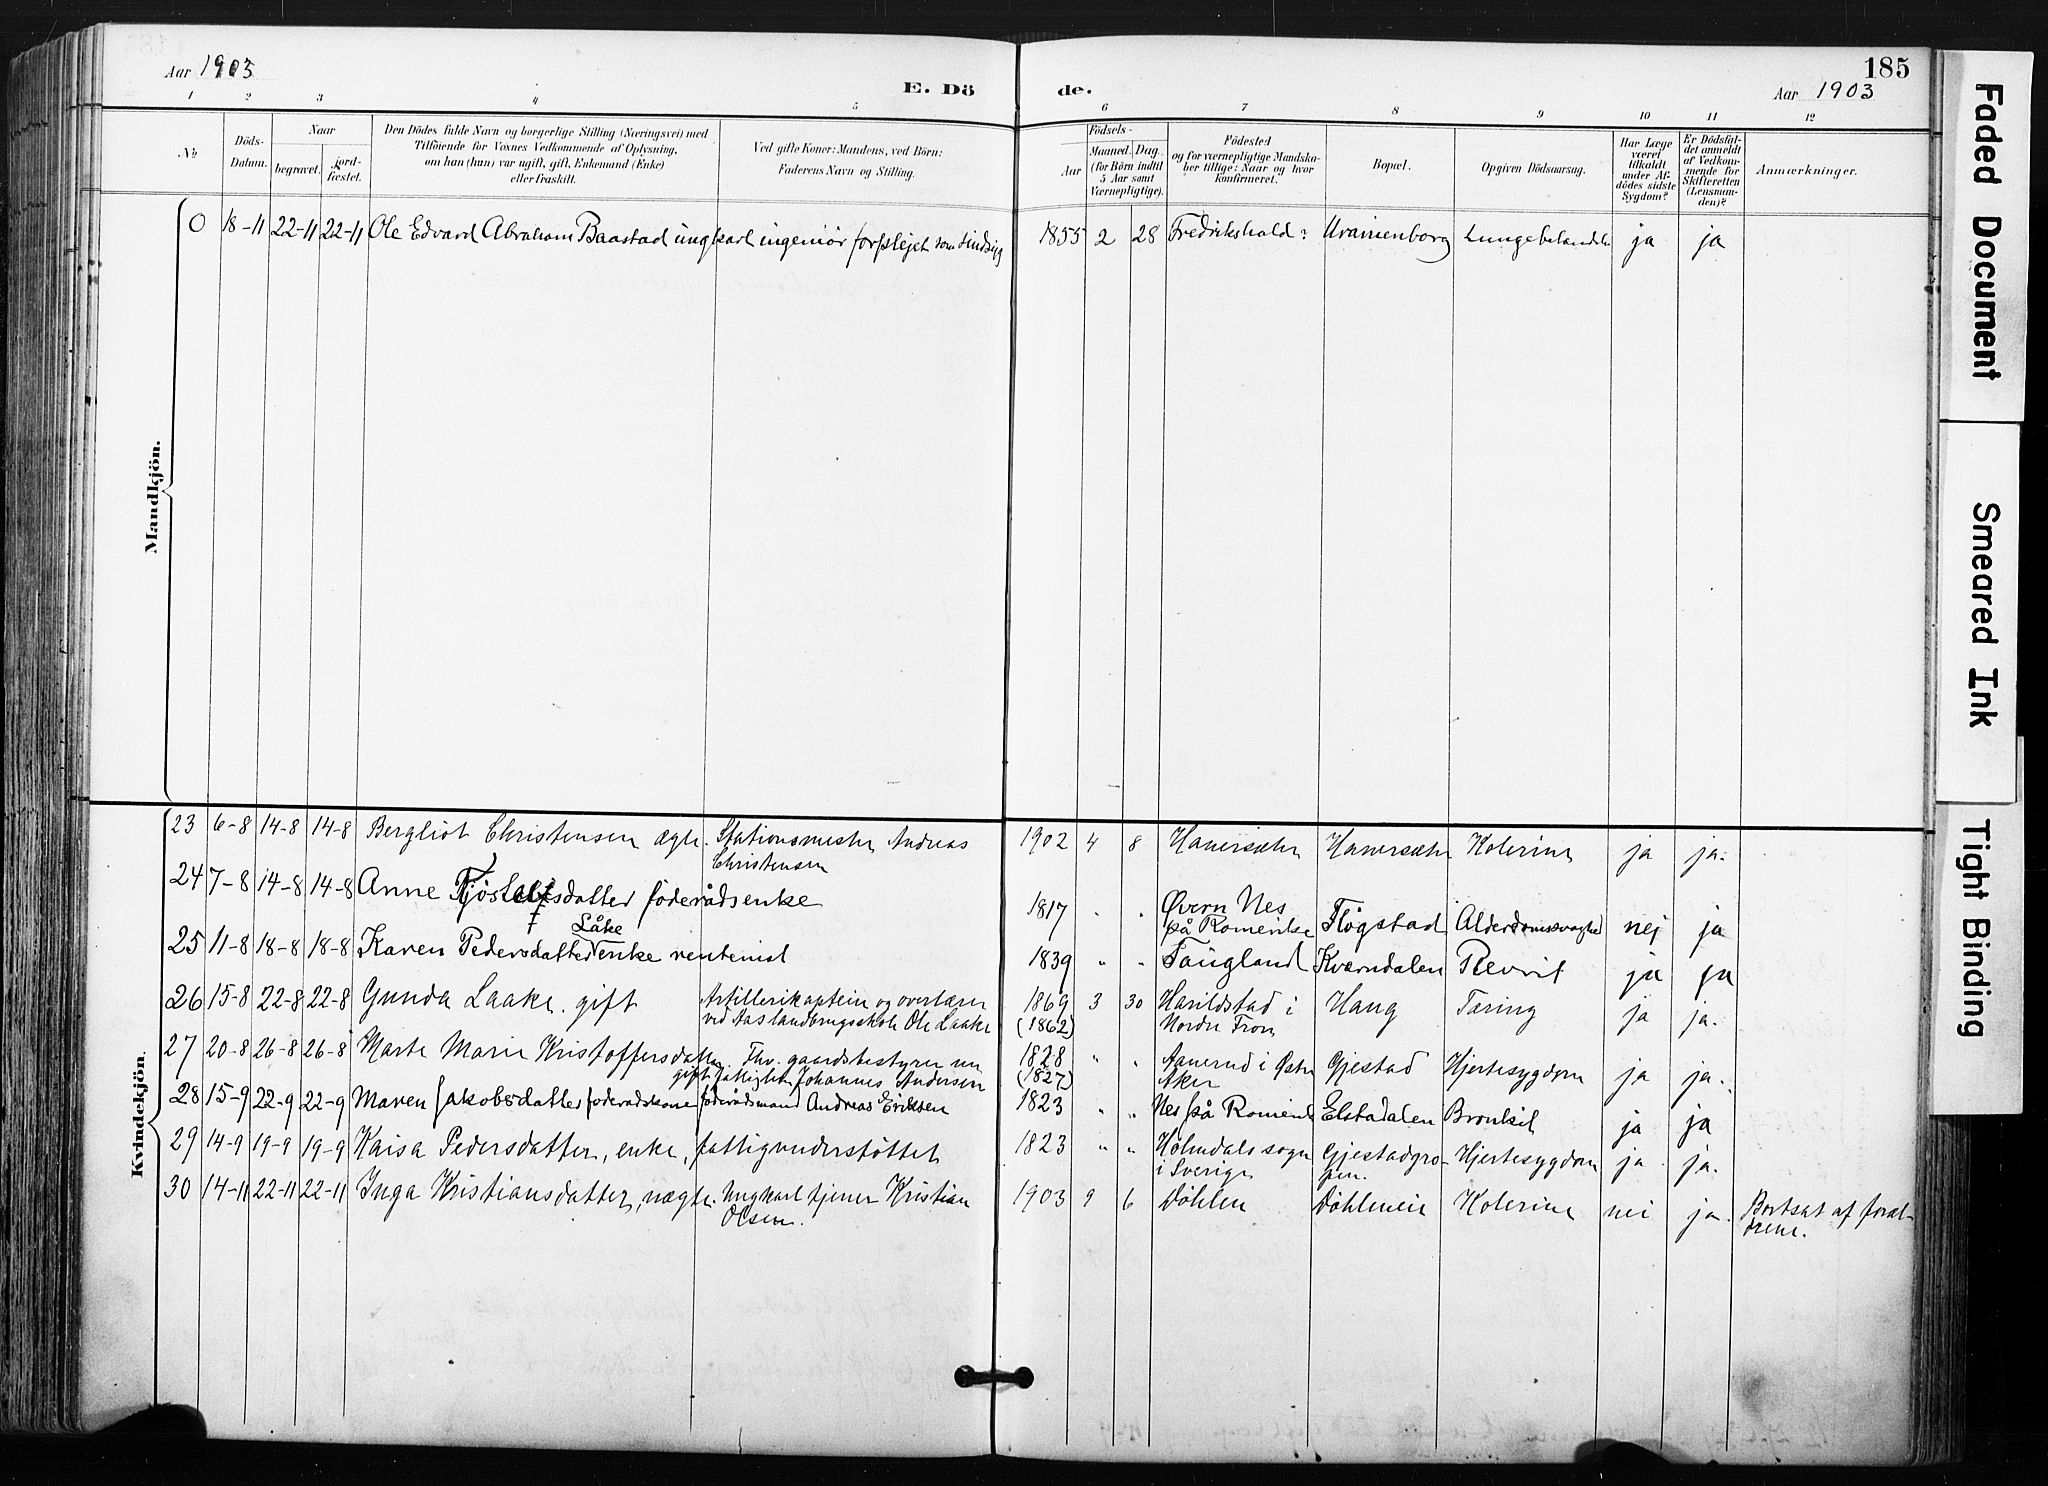 Aar 1903
E. Dö
de.
185
Aar 1903
1 2 3 4 5 6 7 8 9 10 11 12
No
Döds-
Datum.
Naar
begravet.
jord-
fæstet.
Den Dödes fulde Navn og borgerlige Stilling (Næringsvei) med
Tilföiende for Voxnes Vedkommende af Oplysning,
om han (hun) var ugift, gift, Enkemand (Enke)
eller fraskilt.
Ved gifte Koner: Mandens, ved Börn:
Faderens Navn og Stilling.
Födsels-
Aar
Maaned. Dag.
(for Börn indtil
5 Aar samt
Værnepligtige).
Födested
og for værnepligtige Mandska-
ber tillige: Naar og hvor
konfirmeret.
Bopæl.
Opgiven Dödsaarsag.
Har Læge
været
tilkaldt
under Af-
dödes sidste
Sygdom?
Er Dödsfal-
det anmeldt
af Vedkom-
mende for
Skifteretten
(Lensman-
den)?
Anmærkninger.
Mandkjön.
0 18-11 22-11 22-11 Ole Edvard Abraham Baastad ungkarl ingeniör forpleiet som sindsyg 1855 2 28 Fredrikshald? Uranienborg Lungebetændelse ja ja
Kvindekjön.
23 6-8 14-8 14-8 Bergliot Christensen ægte. Stationsmester Andreas 1902 4 8 ja ja.
Christensen
24 7-8 14-8 14-8 Anne föderådsenke 1817 " " Øvern Nes
på Romerike Flögstad Alderdomssvaghed nej ja
Låke
25 11-8 18-8 18-8 Karen Pedersdatter enke rentenist 1839 " " Kværndalen ja ja
26 15-8 22-8 22-8 Gunda Laake. gift Artillerikaptein og overlærer 1869 3 30 i Haug Tæring ja ja.
ved Aas landbrugsskole Ole Laake (1862) Nordre Fron
27 20-8 26-8 26-8 Marte Marie Kristoffersdatter Fhv. gaardsbestyrer nu 1828 " " i Østre Gjestad Hjertesygdom ja ja.
gift. Johannes Andersen (1827) Aker
28 15-9 22-9 22-9 Maren Jakobsdatter föderådskone föderådsmand Andreas Eriksen 1823 " " Nes på Romerike Elstadalen Bronkit ja ja
29 14-9 19-9 19-9 Kaisa Pedersdatter, enke, fattigunderstöttet 1823 " " sogn Gjestadgro- Hjertesygdom ja ja.
i Sverige pen.
30 14-11 22-11 22-11 Inga Kristiansdatter, uægte. Ungkarl tjener Kristian 1903 9 6 Döhlen Döhleneie Kolerine nei ja. Bortsat af foræl-
Olsen. drene.
Faded Document
Smeared Ink
Tight Binding